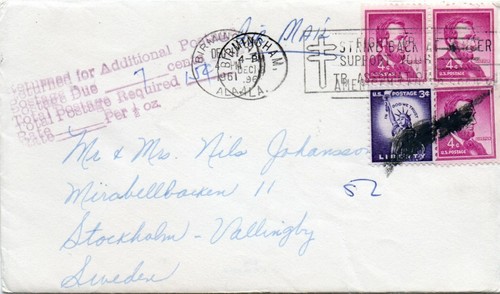 Air Mail
BIRMINGHAM,
DEC
1961
ALA.
STRIKE BACK AT CANCER
SUPPORT YOUR
AMER
Returned for Additional Postage
Postage Due 7 cents
Total Postage Required 15¢
Rate Per ½ oz
4¢
U.S. POSTAGE
4¢
U.S. POSTAGE
U.S. POSTAGE 3¢
IN GOD WE TRUST
LIBERTY
4¢
U.S. POSTAGE
Mr & Mrs. Nils Johansson
Mirabellbacken 11
52
Stockholm - Vallingby
Sweden